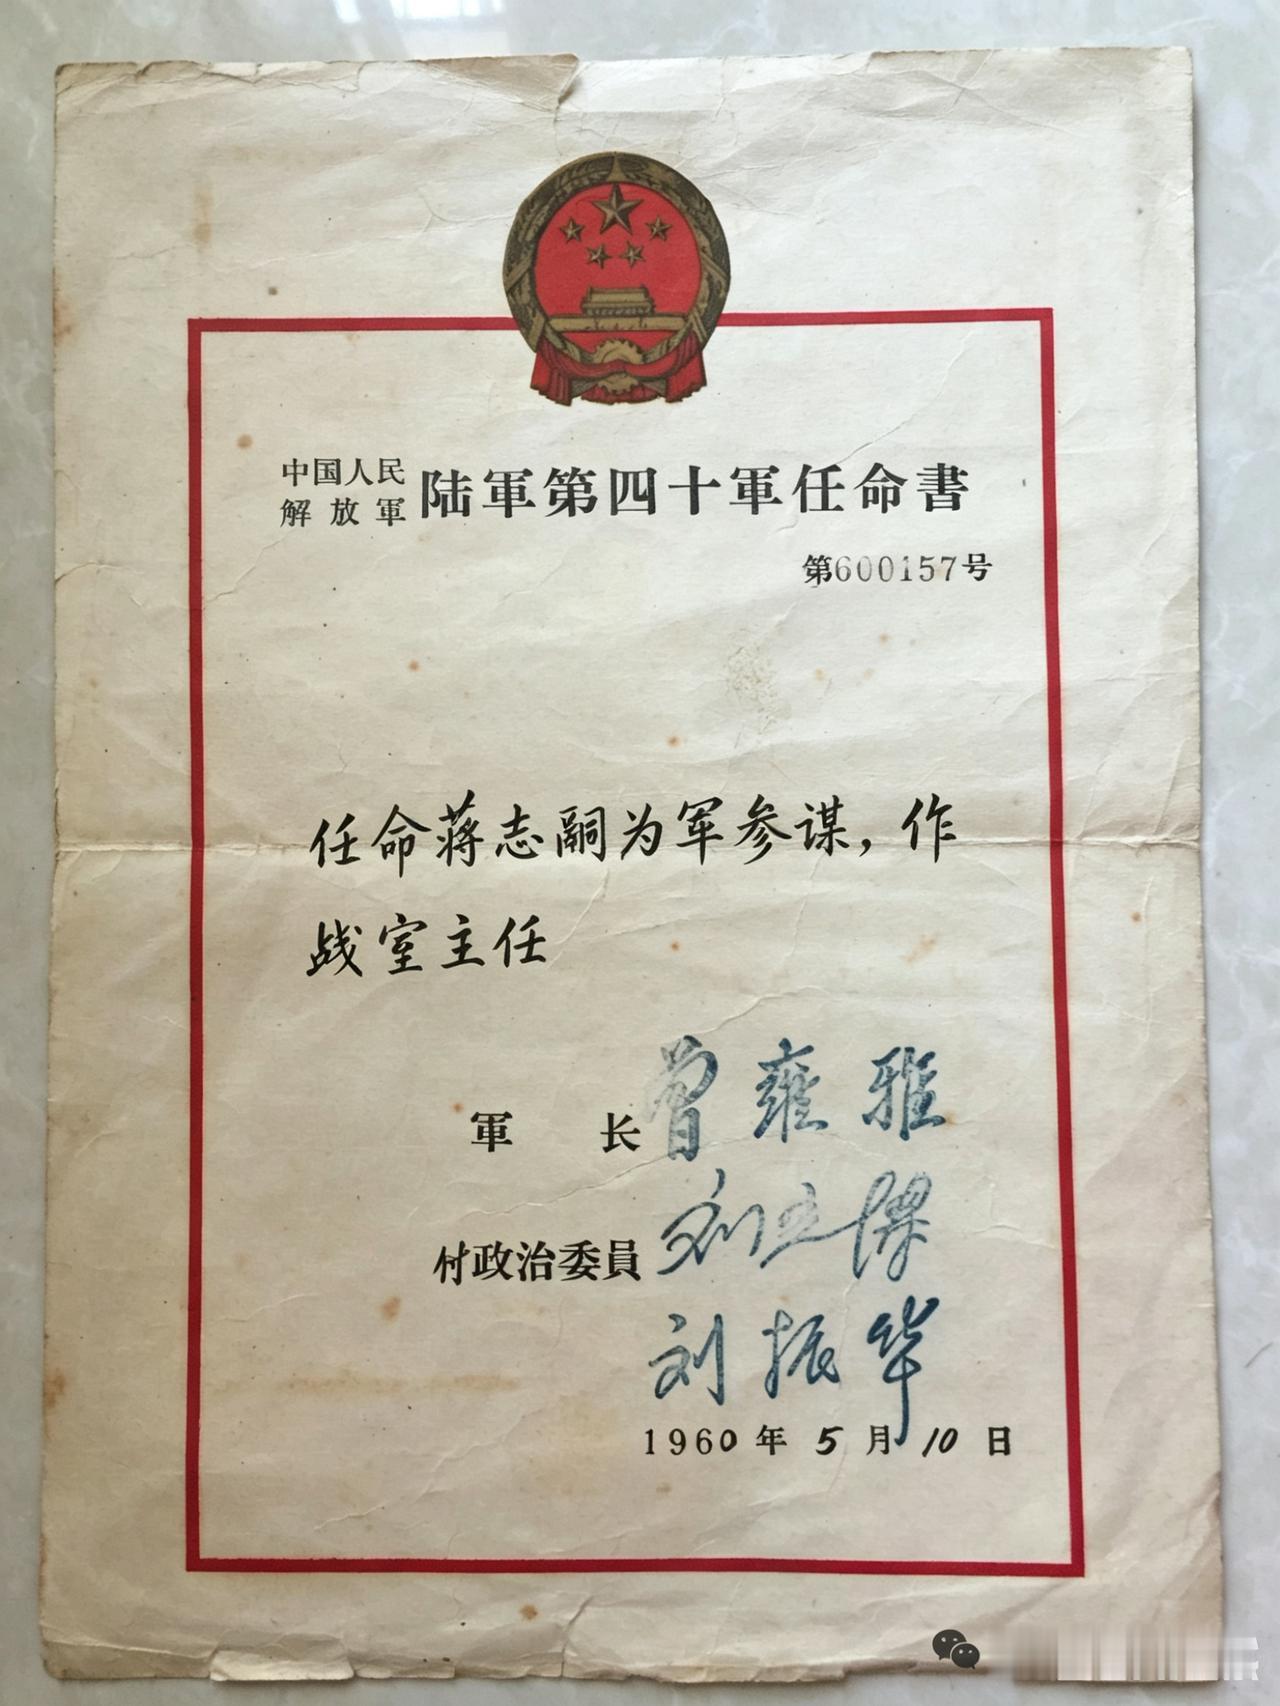 中国人民
解放軍
陆軍第四十軍任命書
第600157号
任命蒋志嗣为军参谋，作
战室主任
軍 长 曾雍雅
付政治委員
刘振华
1960年5月10日